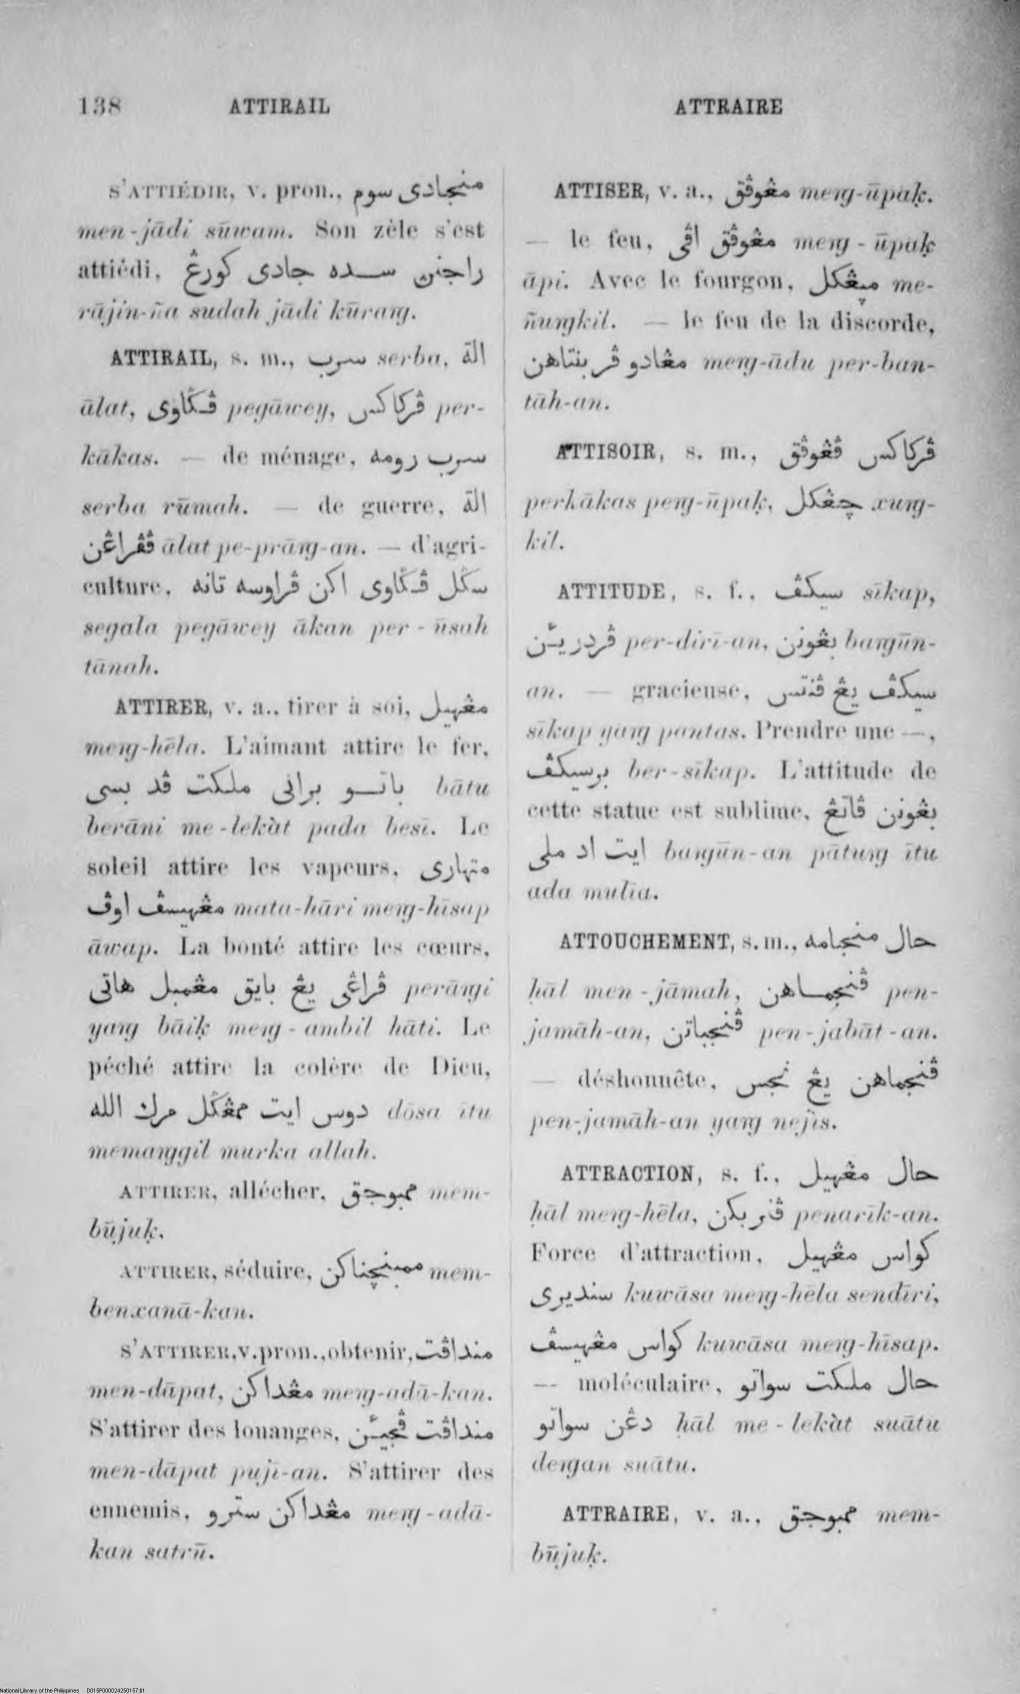 138 ATTIRAIL ATTRAIRE
S'ATTIÉDIR, v. pron., منجادى سوم
men-jādi sūwam. Son zèle s'est
attiédi, راجنن سده جادى كورڠ
rājin-ña sudah jādi kūrang.
ATTIRAIL, s. m., سرب serba, الة
ālat, ڤݢاوى pegāwey, ڤركاكس per-
kākas. — de ménage, سرب رومه
serba rūmah. — de guerre, الة
ڤڤراڠن ālat pe-prāng-an. — d'agri-
culture, سݢل ڤݢاوى اكن ڤراوسه تانه
segala pegāwey ākan per-ūsah
tānah.
ATTIRER, v. a., tirer à soi, مڠهيل
meng-hēla. L'aimant attire le fer,
باتو برانى ملكت ڤد بسى bātu
berāni me-lekàt pada besī. Le
soleil attire les vapeurs, متهارى
مڠهيسڤ اوڤ mata-hāri meng-hīsap
āwap. La bonté attire les cœurs,
ڤراڠى يڠ بايق مڠمبل هاتى perāngi
yang bāiḳ meng-ambil hāti. Le
péché attire la colère de Dieu,
دوس ايت ممڠݢل مرك الله dōsa ītu
memanggil murka allah.
ATTIRER, allécher, ممبوجق mem-
būjuḳ.
ATTIRER, séduire, ممبنچناكن mem-
benxanā-kan.
S'ATTIRER, v. pron., obtenir, منداڤت
men-dāpat, مڠداكن meng-adā-kan.
S'attirer des louanges, منداڤت ڤجيئن
men-dāpat puji-an. S'attirer des
ennemis, مڠداكن ستىرو meng-adā-
kan satrū.
ATTISER, v. a., مڠوڤق meng-ūpaḳ.
— le feu, مڠوڤق اڤى meng-ūpaḳ
āpi. Avec le fourgon, مپڠكل me-
ñungkil. — le feu de la discorde,
مڠادو ڤربنتاهن meng-ādu per-ban-
tāh-an.
ATTISOIR, s. m., ڤركاكس ڤڠوڤق
perkākas peng-ūpaḳ, چڠكل xung-
kil.
ATTITUDE, s. f., سيكڤ sīkap,
ڤردريئن per-diri-an, بڠونن bangūn-
an. — gracieuse, سيكڤ يڠ ڤنتس
sīkap yang pantas. Prendre une —,
برسيكڤ ber-sīkap. L'attitude de
cette statue est sublime, بڠونن ڤاتڠ
ايت اد ملى bangūn-an pātung ītu
ada mulīa.
ATTOUCHEMENT, s. m., حال منجامه
ḥāl men-jāmah, ڤنجماهن pen-
jamāh-an, ڤنجباتن pen-jabāt-an.
— déshonnête, ڤنجماهن يڠ نجس
pen-jamāh-an yang nejis.
ATTRACTION, s. f., حال مڠهيل
ḥāl meng-hēla, ڤنريكن penarīk-an.
Force d'attraction, كواس مڠهيل
سنديرى kuwāsa meng-hēla sendīri,
كواس مڠهيسڤ kuwāsa meng-hīsap.
— moléculaire, حال ملكت سواتو
دڠن سواتو ḥāl me-lekàt suātu
dengan suātu.
ATTRAIRE, v. a., ممبوجق mem-
būjuḳ.
National Library of the Philippines